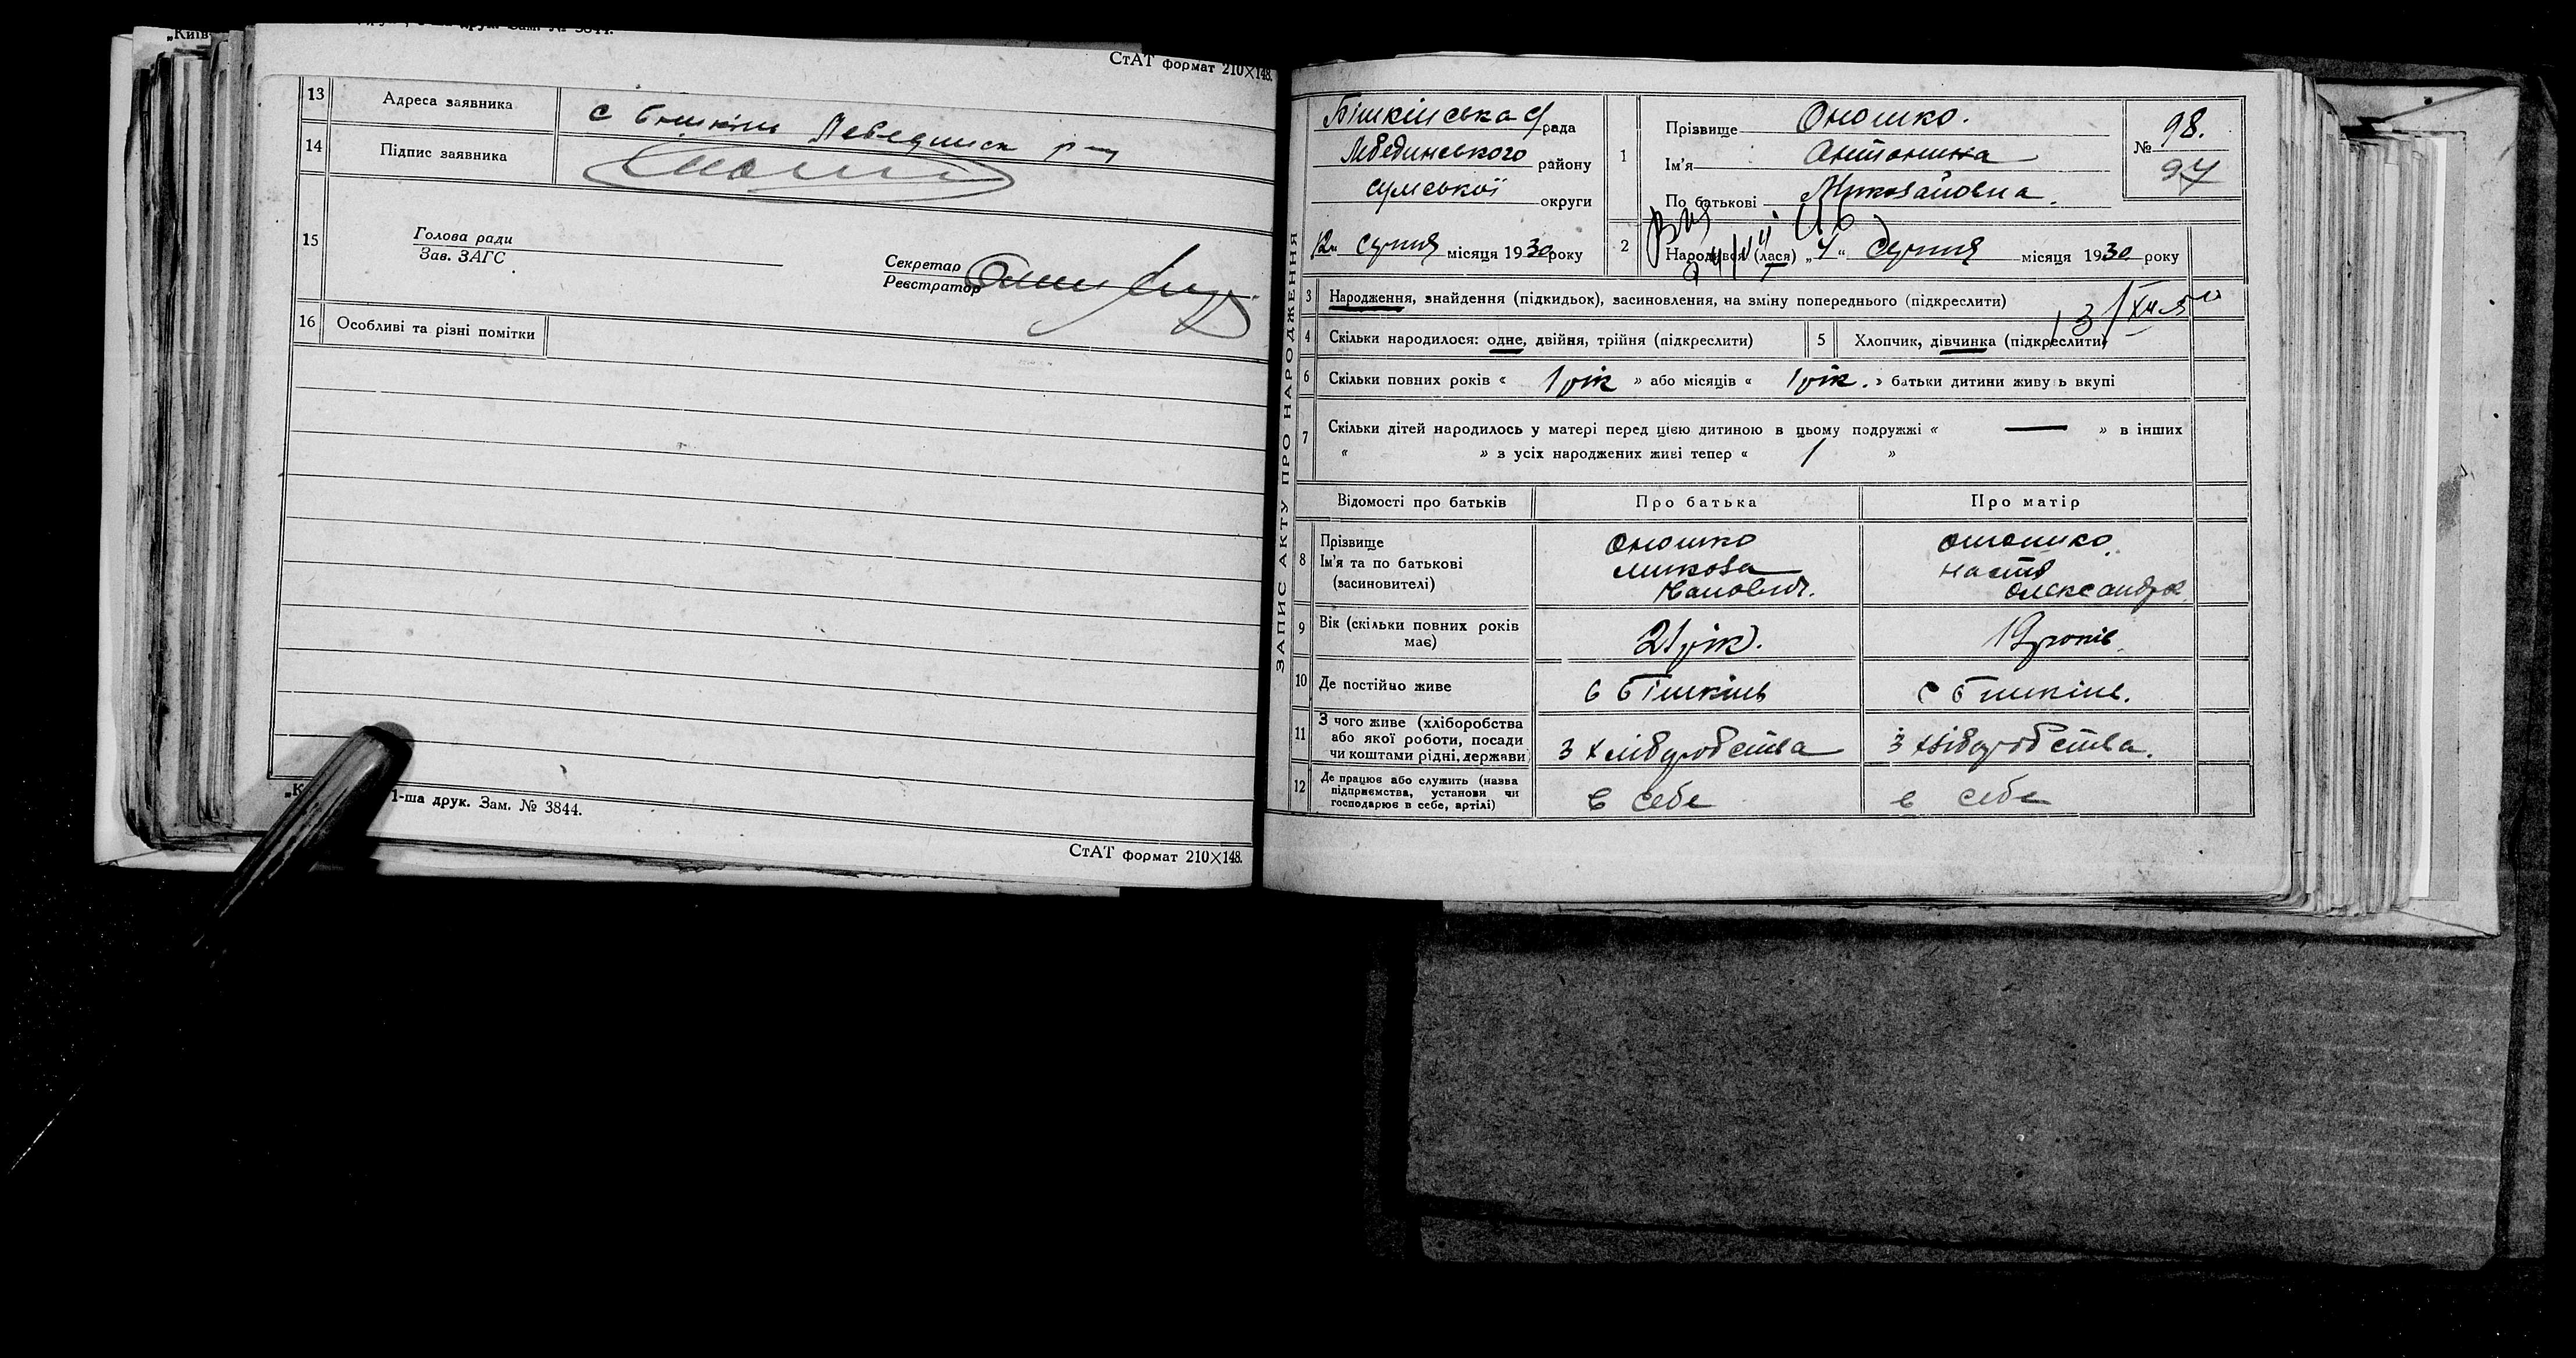 СтАТ формат 210×148.
13 Адреса заявника с Бишкінь Лебединск р-ну
14 Підпис заявника
15 Голова ради
Зав. ЗАГС
Секретар
Реєстратор
16 Особливі та різні помітки
1-ша друк. Зам. № 3844.
СтАТ формат 210×148.
ЗАПИС АКТУ ПРО НАРОДЖЕННЯ
Бішкінська с/рада
Лебединського району
Сумської округи
12 " Серпня місяця 1930 року
1 Прізвище Оношко.
Ім'я Антонина
По батькові Миколаївна.
№ 98.
97
2 Народився (лася) „4“ Серпня місяця 1930 року
3 Народження, знайдення (підкидьок), засиновлення, на зміну попереднього (підкреслити)
4 Скільки народилося: одне, двійня, трійня (підкреслити)
5 Хлопчик, дівчинка (підкреслити)
6 Скільки повних років « 1 рік » або місяців « 1 рік. » батьки дитини живуть вкупі
7 Скільки дітей народилось у матері перед цією дитиною в цьому подружжі « — » в інших
« » з усіх народжених живі тепер « 1 »
Відомості про батьків Про батька Про матір
8 Прізвище Оношко Оношко
Ім'я та по батькові Микола Настя
(засновителі) Олександр.
9 Вік (скільки повних років має) 21 рік. 19 років.
10 Де постійно живе с Бішкінь с Бишкінь.
11 З чого живе (хліборобства
або якої роботи, посади
чи коштами рідні, держави) З хліборобства З хліборобства.
12 Де працює або служить (назва
підприємства, установи чи
господарює в себе, артілі) в себе в себе